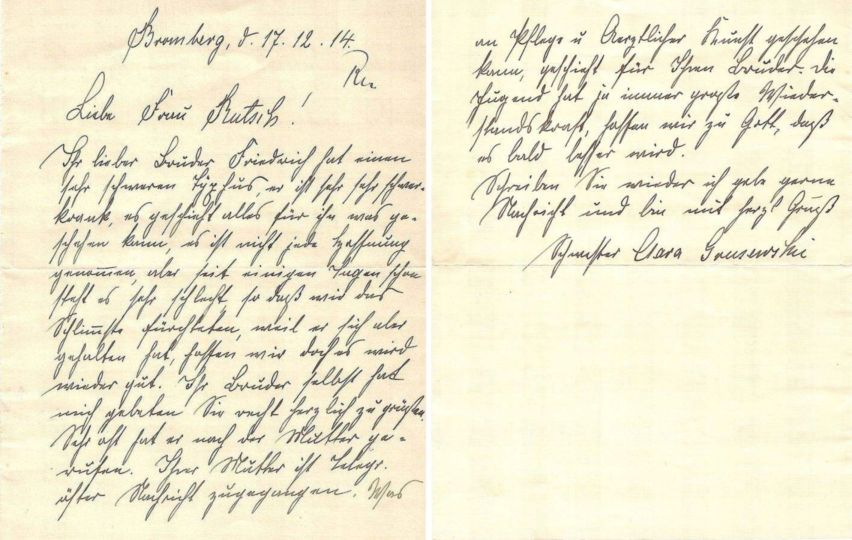 Bromberg, d. 17.12.14.
Liebe Frau Kutsch!
Ihr lieber Bruder Friedrich hat einen
sehr schweren Typhus, er ist sehr sehr schwer
krank, es geschieht alles für ihn was ge-
schehen kann, es ist nicht jede Hoffnung
genommen, aber seit einigen Tagen schon
steht es sehr schlecht, so daß wir das
Schlimmste fürchteten, weil er sich aber
gehalten hat, hoffen wir doch es wird
wieder gut. Ihr Bruder selbst hat
mich gebeten Sie recht herzlich zu grüßen.
Sehr oft hat er nach der Mutter ge-
rufen. Ihrer Mutter ist telegr.
öfter Nachricht zugegangen. Was
an Pflege u Aerztlicher Kunst geschehen
kann, geschieht für Ihren Bruder. Die
Jugend hat ja immer große Wieder-
standskraft, hoffen wir zu Gott, daß
es bald besser wird.
Schreiben Sie wieder ich gebe gerne
Nachricht und bin mit herzl Gruß
Schwester Clara